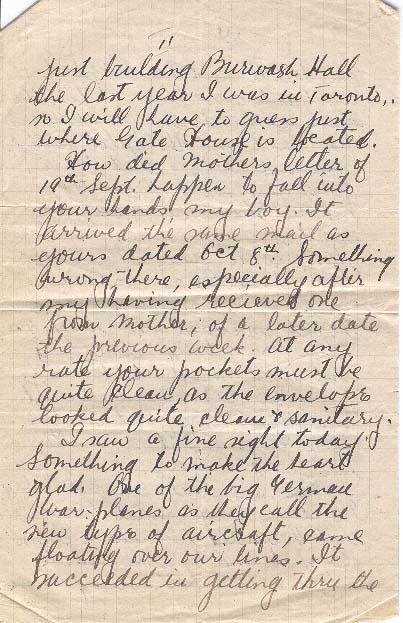 11
just building Burwash Hall
the last year I was in Toronto,
so I will have to guess just
where Gate House is located.
How did Mothers letter of
19th Sept. happen to fall into
your hands my boy. It
arrived the same mail as
yours dated Oct 8th. Something
wrong there, especially after
my having recieved one
from Mother, of a later date
the previous week. At any
rate your pockets must be
quite clean, as the envelope
looked quite clean & sanitary.
I saw a fine sight today.
Something to make the heart
glad. One of the big German
war-planes as they call the
new type of aircraft, came
floating over our lines. It
succeeded in getting thru the